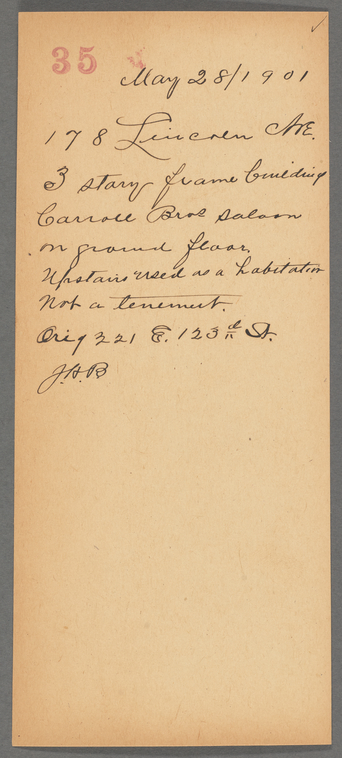 35
May 28/1901
178 Lincoln Ave.
3 story frame building
Carroll Bros saloon
on ground floor.
Upstairs used as a habitation
Not a tenement.
Orig 221 E. 123d St.
J.H.B